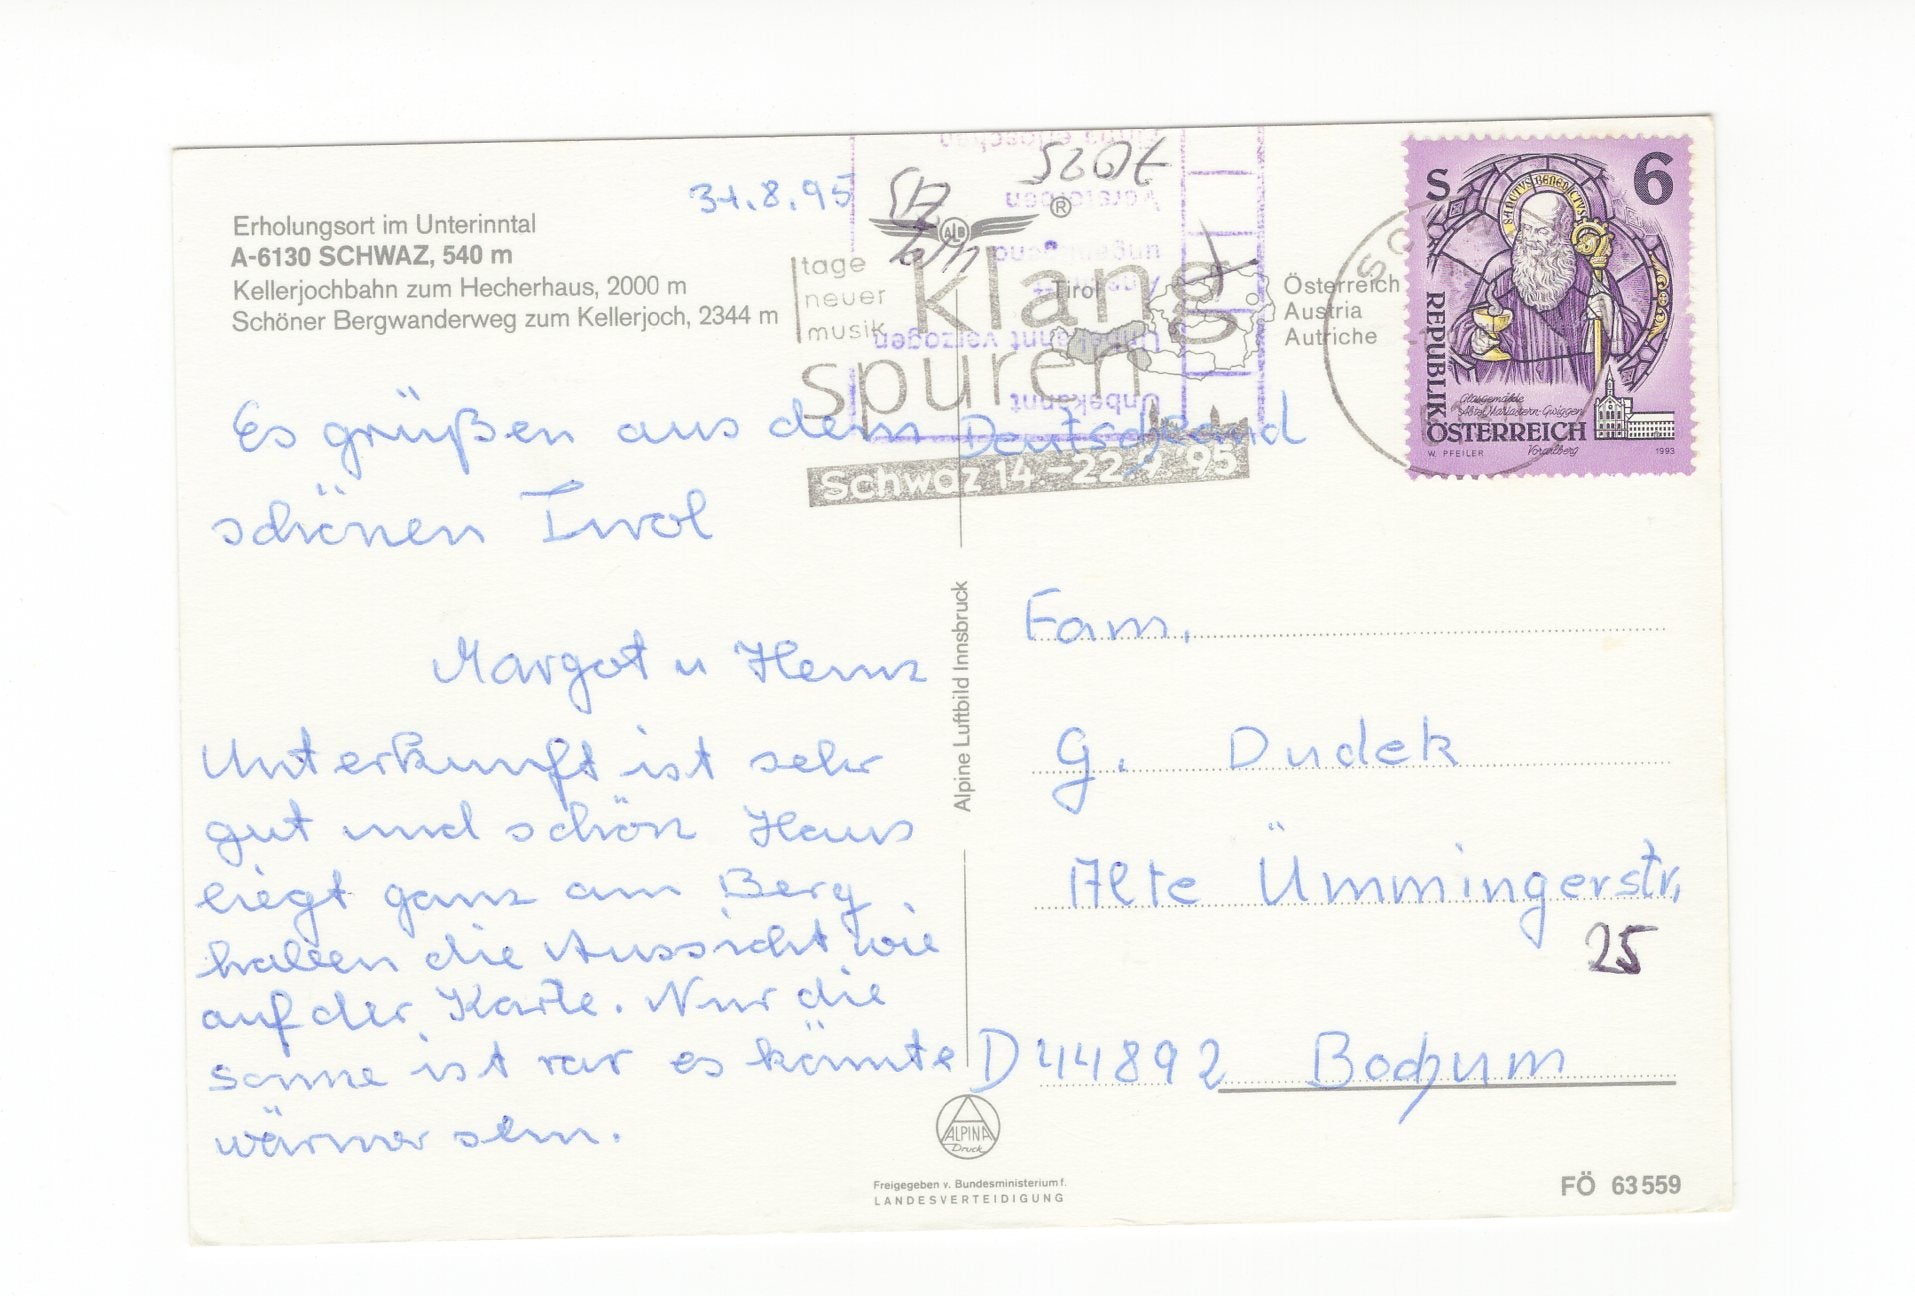 31.8.95
Erholungsort im Unterinntal
A-6130 SCHWAZ, 540 m
Kellerjochbahn zum Hecherhaus, 2000 m
Schöner Bergwanderweg zum Kellerjoch, 2344 m
Es grüßen aus dem Deutschland
schönen Tirol
Margot u Heinz
Unterkunft ist sehr
gut und schön Haus
liegt ganz am Berg
haben die Aussicht wie
auf der Karte. Nur die
sonne ist rar es könnte
wärmer sein.
ALB
®
Tirol
Österreich
Austria
Autriche
tage
neuer
musik
klang
spuren
Schwaz 14.-22.9.95
Verstorben
ungenügend
Unbekannt verzogen
Unbekannt
S 6
SANCTVS BENEDICTVS
REPUBLIK
ÖSTERREICH
Glasgemälde
Abtei Mariastern-Gwiggen
Vorarlberg
W. PFEILER
1993
Alpine Luftbild Innsbruck
Fam.
G. Dudek
Alte Ümmingerstr.
25
D 44892 Bochum
ALPINA
Druck
Freigegeben v. Bundesministerium f.
LANDESVERTEIDIGUNG
FÖ 63559